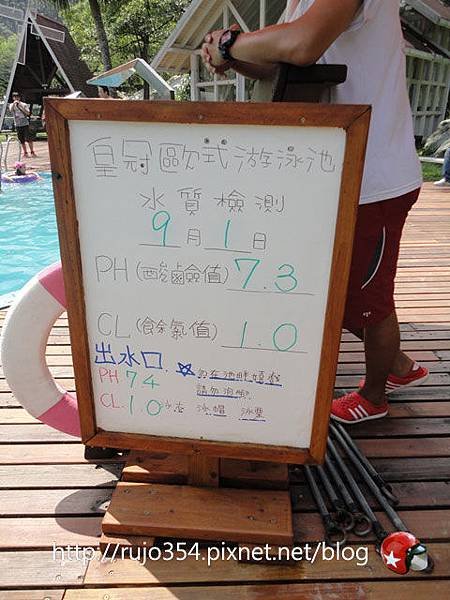 皇冠歐式游泳池
水質檢測
9月1日
PH(酸鹼值) 7.3
CL(餘氯值) 1.0
出水口
PH 7.4
CL 1.0
☆勿在池畔嬉戲
請勿泡腳
泳帽 泳裝
http://rujo354.pixnet.net/blog